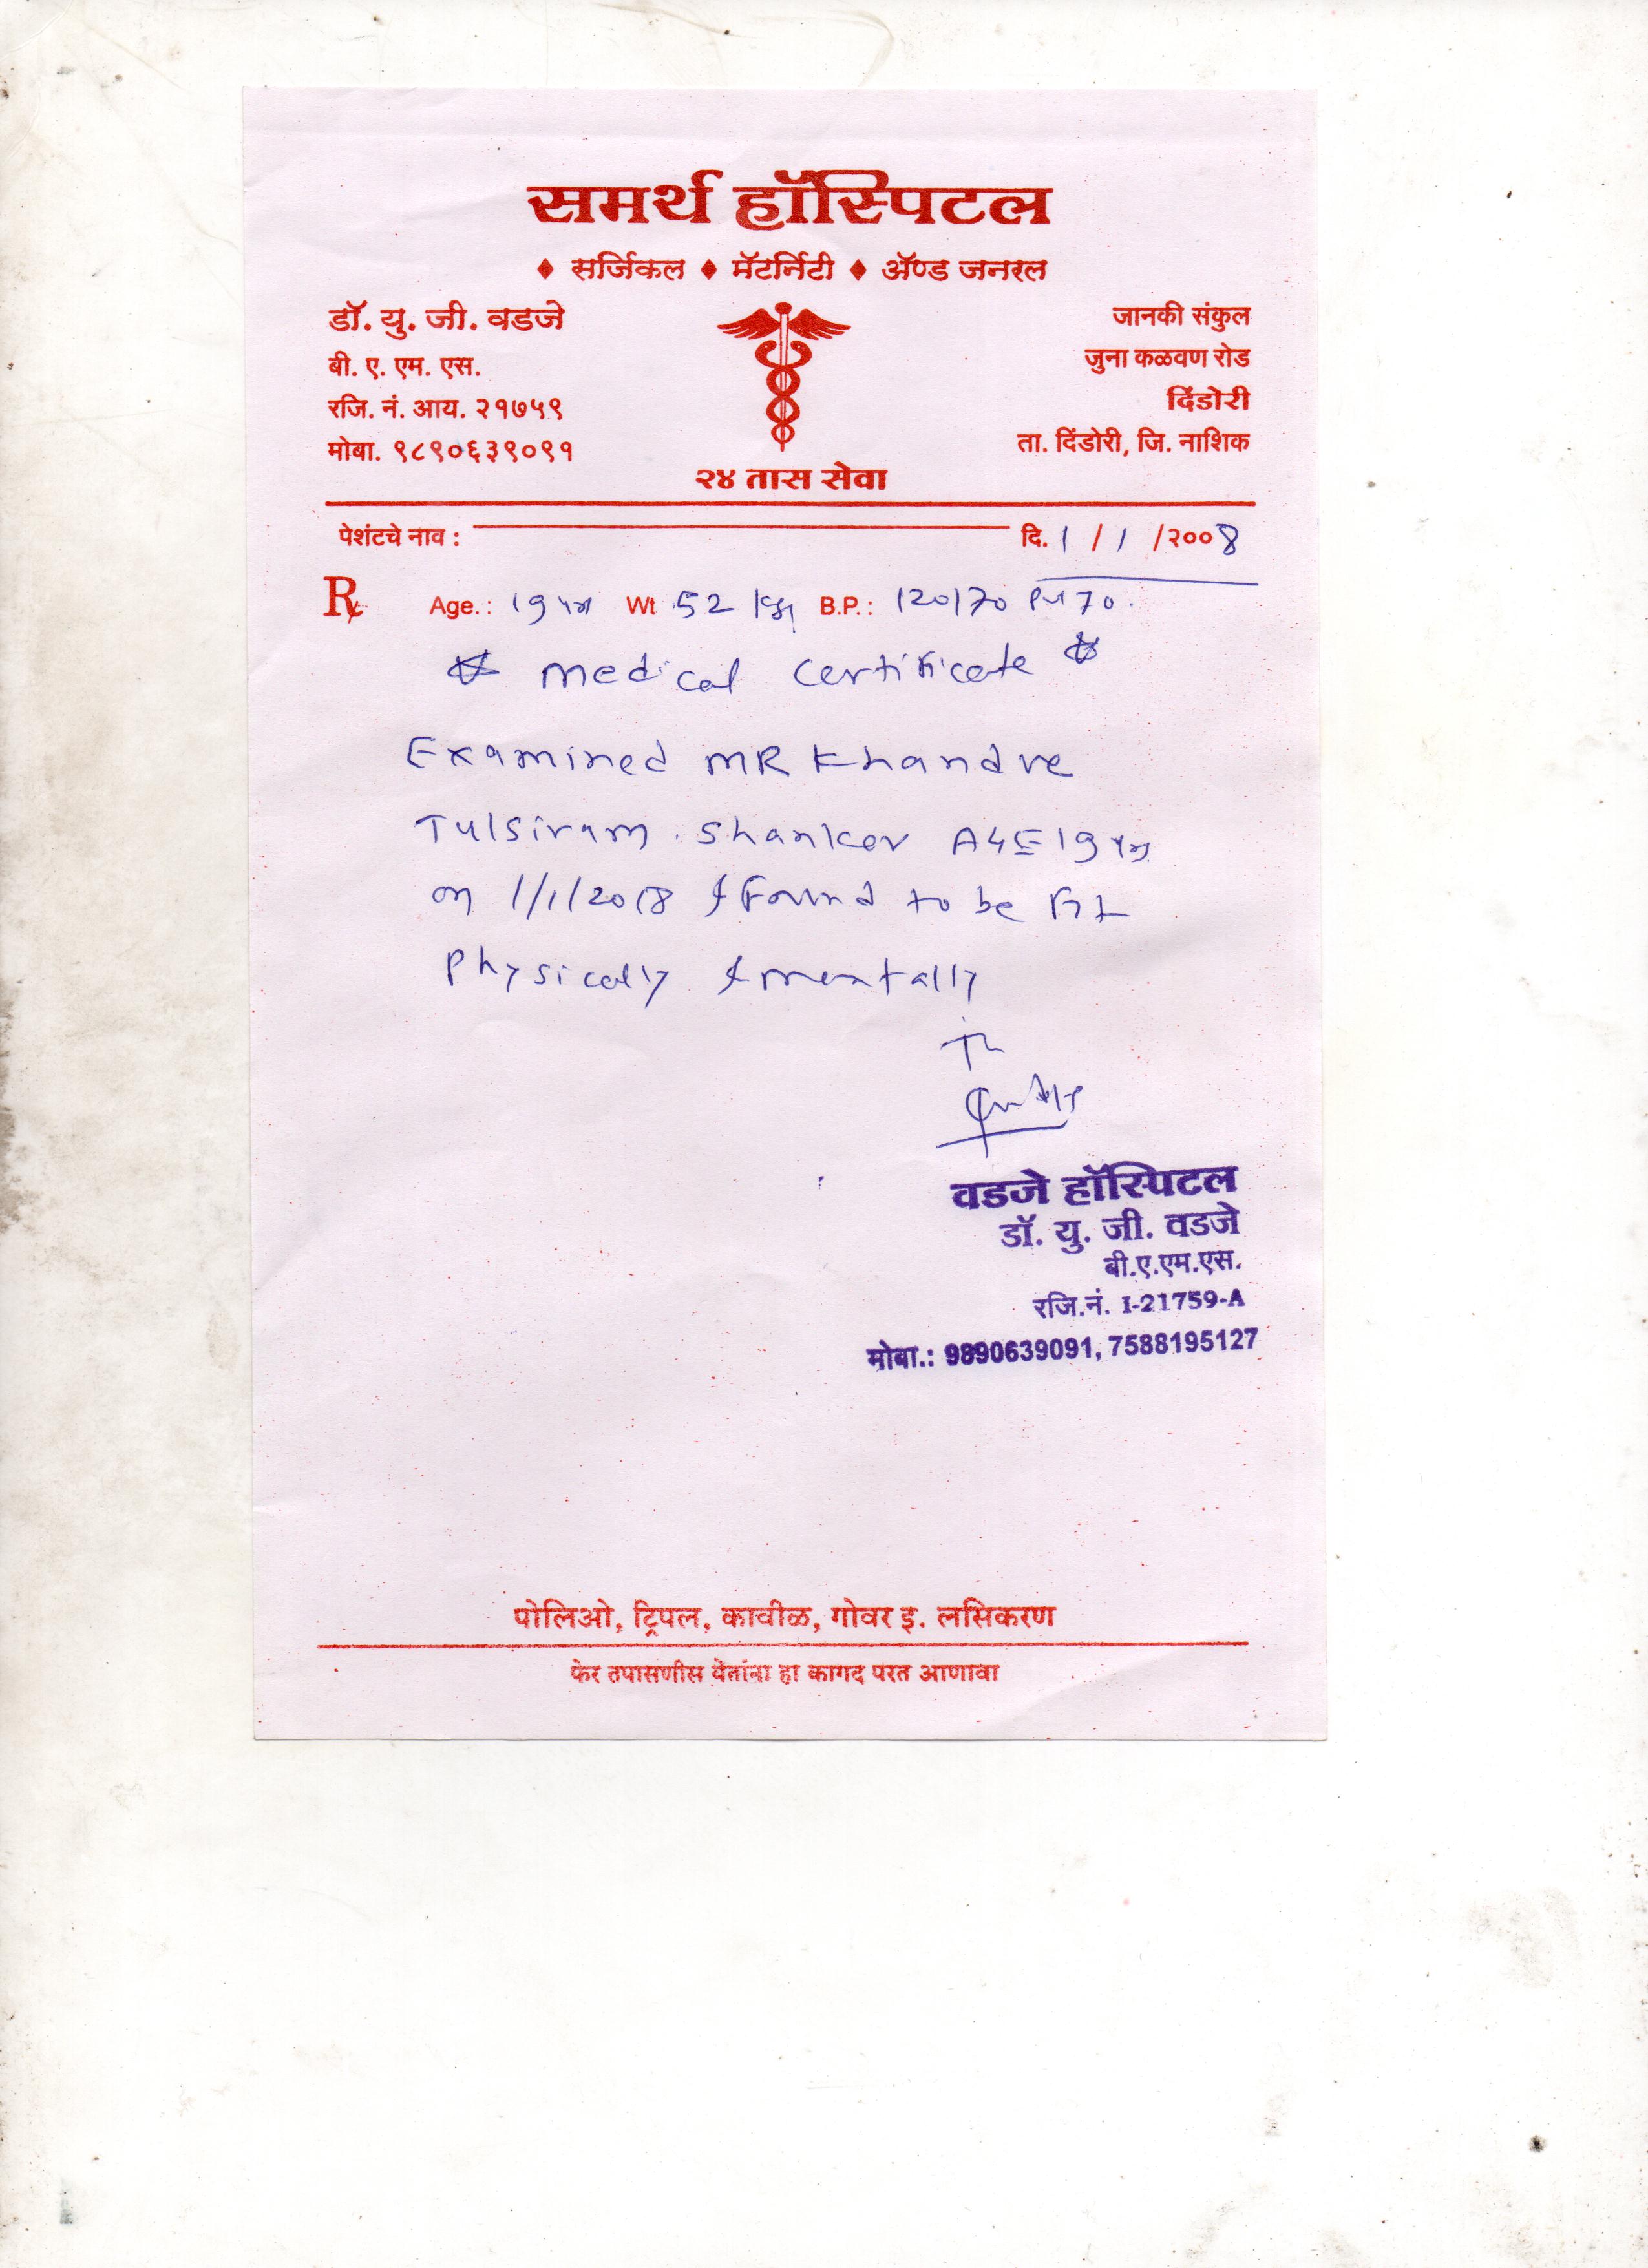 समर्थ हॉस्पिटल
♦ सर्जिकल ♦ मॅटर्निटी ♦ अ‍ॅण्ड जनरल
डॉ. यु. जी. वडजे
बी. ए. एम. एस.
रजि. नं. आय. २१७५९
मोबा. ९८९०६३९०९१
जानकी संकुल
जुना कळवण रोड
दिंडोरी
ता. दिंडोरी, जि. नाशिक
२४ तास सेवा
पेशंटचे नाव :
दि. 1 / 1 /२००8
Rx Age.: 19 yrs Wt 52 kg B.P.: 120/70 70.
Medical Certificate
Examined MR Khandve
Tulsiram. Shanker AGE 19 yrs
on 1/1/2018 & Found to be Fit
Physicaly & mentally
वडजे हॉस्पिटल
डॉ. यु. जी. वडजे
बी.ए.एम.एस.
रजि.नं. I-21759-A
मोबा.: 9890639091, 7588195127
पोलिओ, ट्रिपल, कावीळ, गोवर इ. लसिकरण
फेर तपासणीस येतांना हा कागद परत आणावा